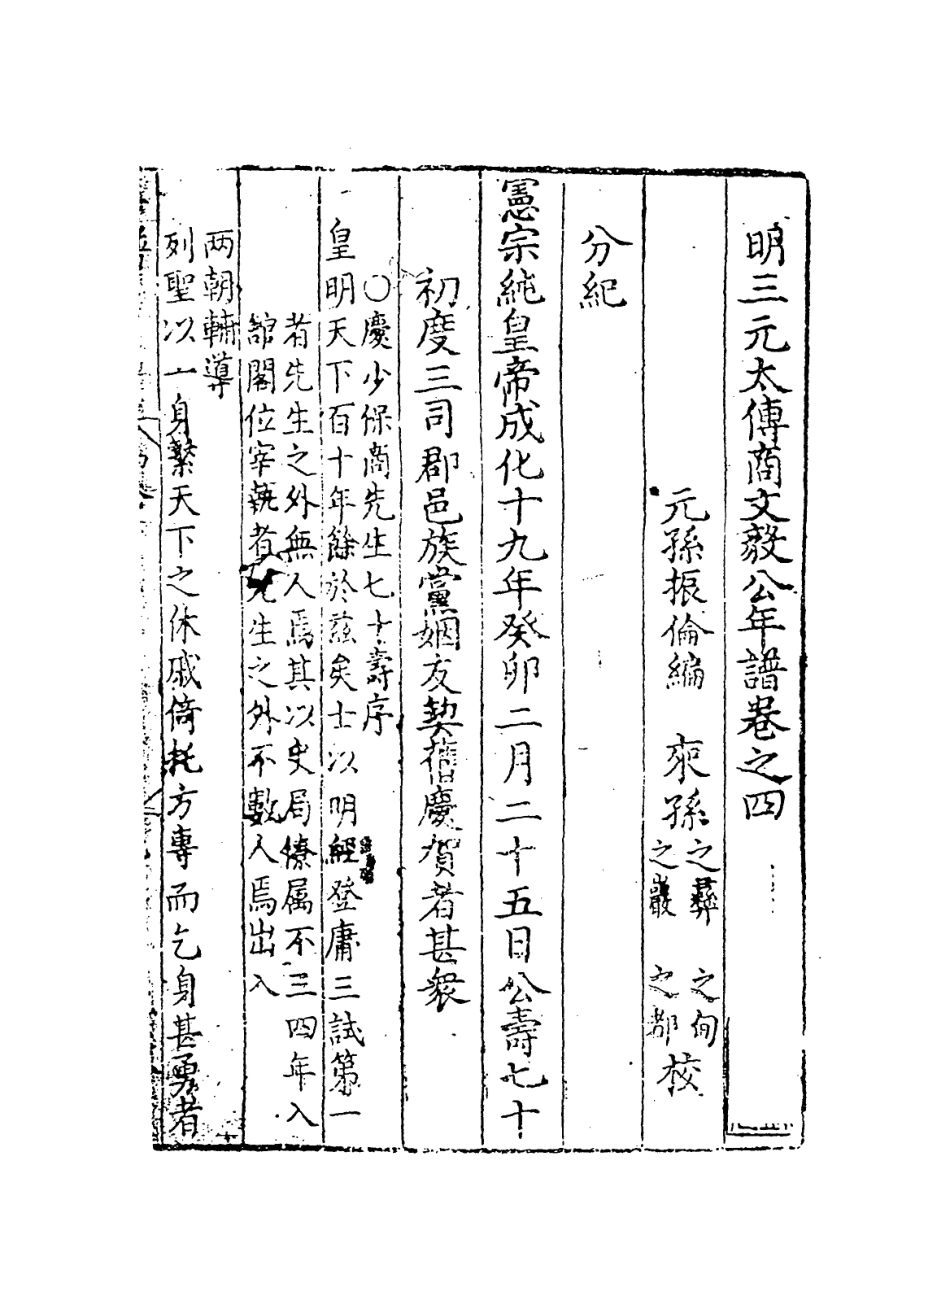 明三元太傅商文毅公年譜卷之四
元孫振倫編 來孫之彝 之巖 之佝 之都 校
分紀
憲宗純皇帝成化十九年癸卯二月二十五日公壽七十
初度三司郡邑族黨姻友契舊慶賀者甚衆
○慶少保商先生七十壽序
皇明天下百十年餘於茲矣士以明經登庸三試第一
者先生之外無人焉其以史局僚属不三四年入
舘閣位宰執者先生之外不數人焉出入
两朝輔導
列聖以一身繫天下之休戚倚托方專而乞身甚勇者